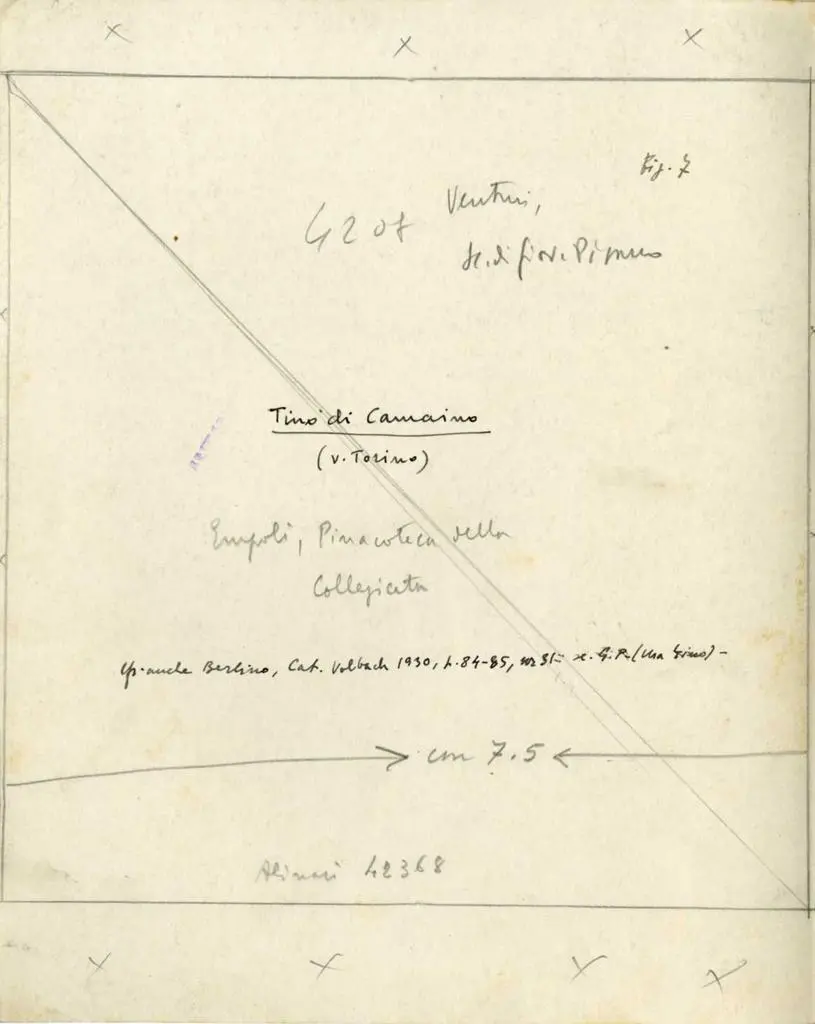 Fig. 7
4207
Venturi,
sc. di Giov. Pisano
Tino di Camaino
(v. Torino)
Empoli, Pinacoteca della
Collegiata
Cfr. anche Berlino, Cat. Volbach 1930, p. 84-85, sc. G. P. (ma Tino) -
cm 7.5
Alinari 42368